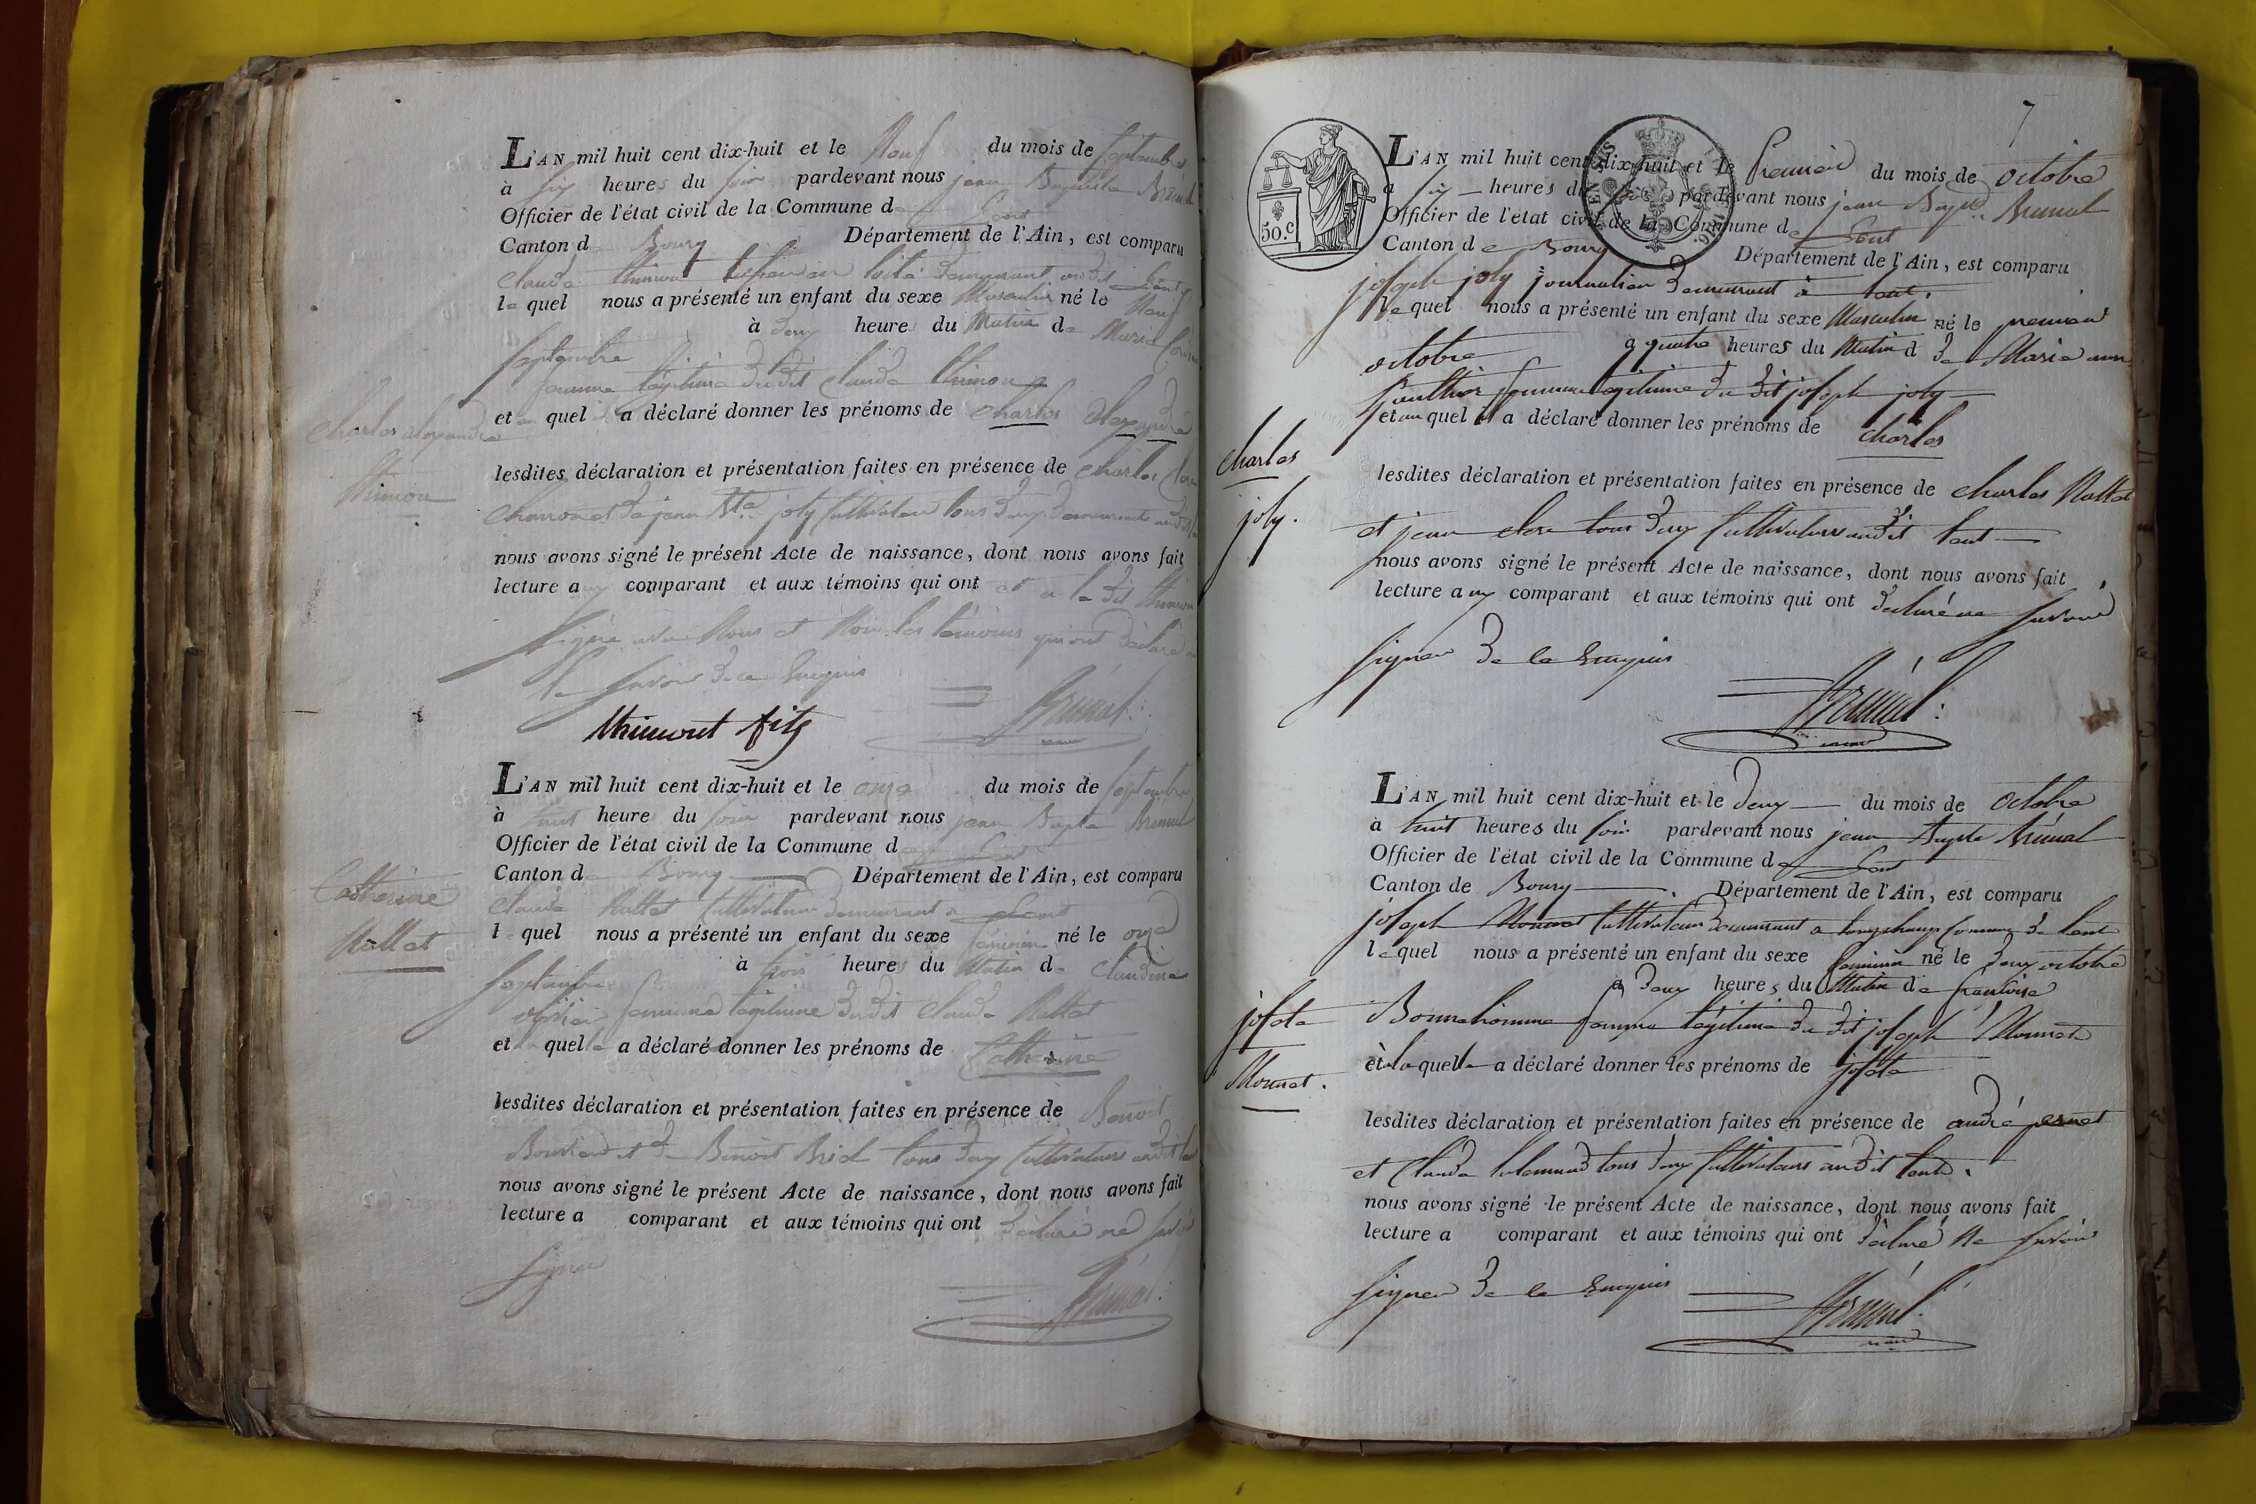 L'AN mil huit cent dix-huit et le Neuf du mois de septembre
à six heures du soir pardevant nous jean Baptiste Brunal
Officier de l'état civil de la Commune de
Canton de Bourg Département de l'Ain, est comparu
claude thimont demeurant audit
lequel nous a présenté un enfant du sexe Masculin né le Neuf
septembre à deux heure du Matin de Marie
femme légitime dudit claude thimont
et quel a déclaré donner les prénoms de charles alexandre
charles alexandre
thimon
lesdites déclaration et présentation faites en présence de charles
charron et de jean Bte joly Cultivateur tous deux demeurant audit
nous avons signé le présent Acte de naissance, dont nous avons fait
lecture aux comparant et aux témoins qui ont et a le dit thimon
signé avec Nous et Non les témoins qui ont déclaré ne
le savoir de ce Enquis
thimont fils
Brunal
L'AN mil huit cent dix-huit et le onze du mois de septembre
à huit heure du soir pardevant nous jean Bapte Brunal
Officier de l'état civil de la Commune de
Canton de Bourg Département de l'Ain, est comparu
claude Nallet Cultivateur demeurant a
lequel nous a présenté un enfant du sexe féminin né le onze
septembre à trois heures du Matin de claudine
femme légitime dudit claude Nallet
Catherine
Nallet
et quelle a déclaré donner les prénoms de Catherine
lesdites déclaration et présentation faites en présence de Benoit
et de Benoit tous deux Cultivateurs audit
nous avons signé le présent Acte de naissance, dont nous avons fait
lecture a comparant et aux témoins qui ont déclaré ne savoir
signer
Brunal
7
50.c
L'AN mil huit cent dix-huit et le Premier du mois de octobre
à six heures du soir pardevant nous jean Bapte Brunal
Officier de l'état civil de la Commune de
Canton de Bourg Département de l'Ain, est comparu
joseph joly journalier demeurant à
lequel nous a présenté un enfant du sexe Masculin né le premier
octobre a quatre heures du Matin de Marie anne
Gauthier femme légitime du dit joseph joly
et au quel il a déclaré donner les prénoms de charles
charles
joly.
lesdites déclaration et présentation faites en présence de charles Nallet
et jean clerc tous deux Cultivateurs audit
nous avons signé le présent Acte de naissance, dont nous avons fait
lecture aux comparant et aux témoins qui ont déclaré ne savoir
signer de ce Enquis
Brunal
L'AN mil huit cent dix-huit et le deux du mois de octobre
à huit heures du soir pardevant nous jean Bapte Brunal
Officier de l'état civil de la Commune de
Canton de Bourg Département de l'Ain, est comparu
joseph Monnet Cultivateur demeurant a longchamp Commune de
lequel nous a présenté un enfant du sexe féminin né le deux octobre
à deux heures du Matin de françoise
Bonnehomme femme légitime du dit joseph Monnet
josete
Monnet.
et la quelle a déclaré donner les prénoms de josete
lesdites déclaration et présentation faites en présence de andré pernet
et Claude tous deux Cultivateurs audit
nous avons signé le présent Acte de naissance, dont nous avons fait
lecture a comparant et aux témoins qui ont déclaré Ne savoir
signer de ce Enquis
Brunal